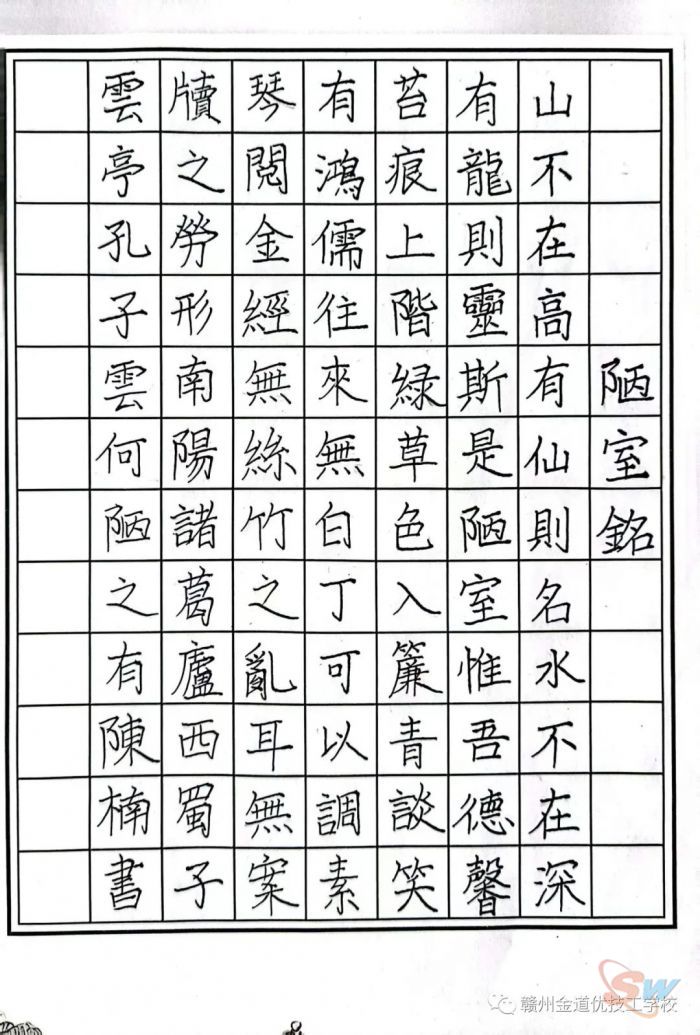 陋室銘
山不在高有仙則名水不在深
有龍則靈斯是陋室惟吾德馨
苔痕上階緑草色入簾青談笑
有鴻儒往來無白丁可以調素
琴閲金經無絲竹之亂耳無案
牘之勞形南陽諸葛廬西蜀子
雲亭孔子雲何陋之有陳楠書
SW
赣州金道优技工学校